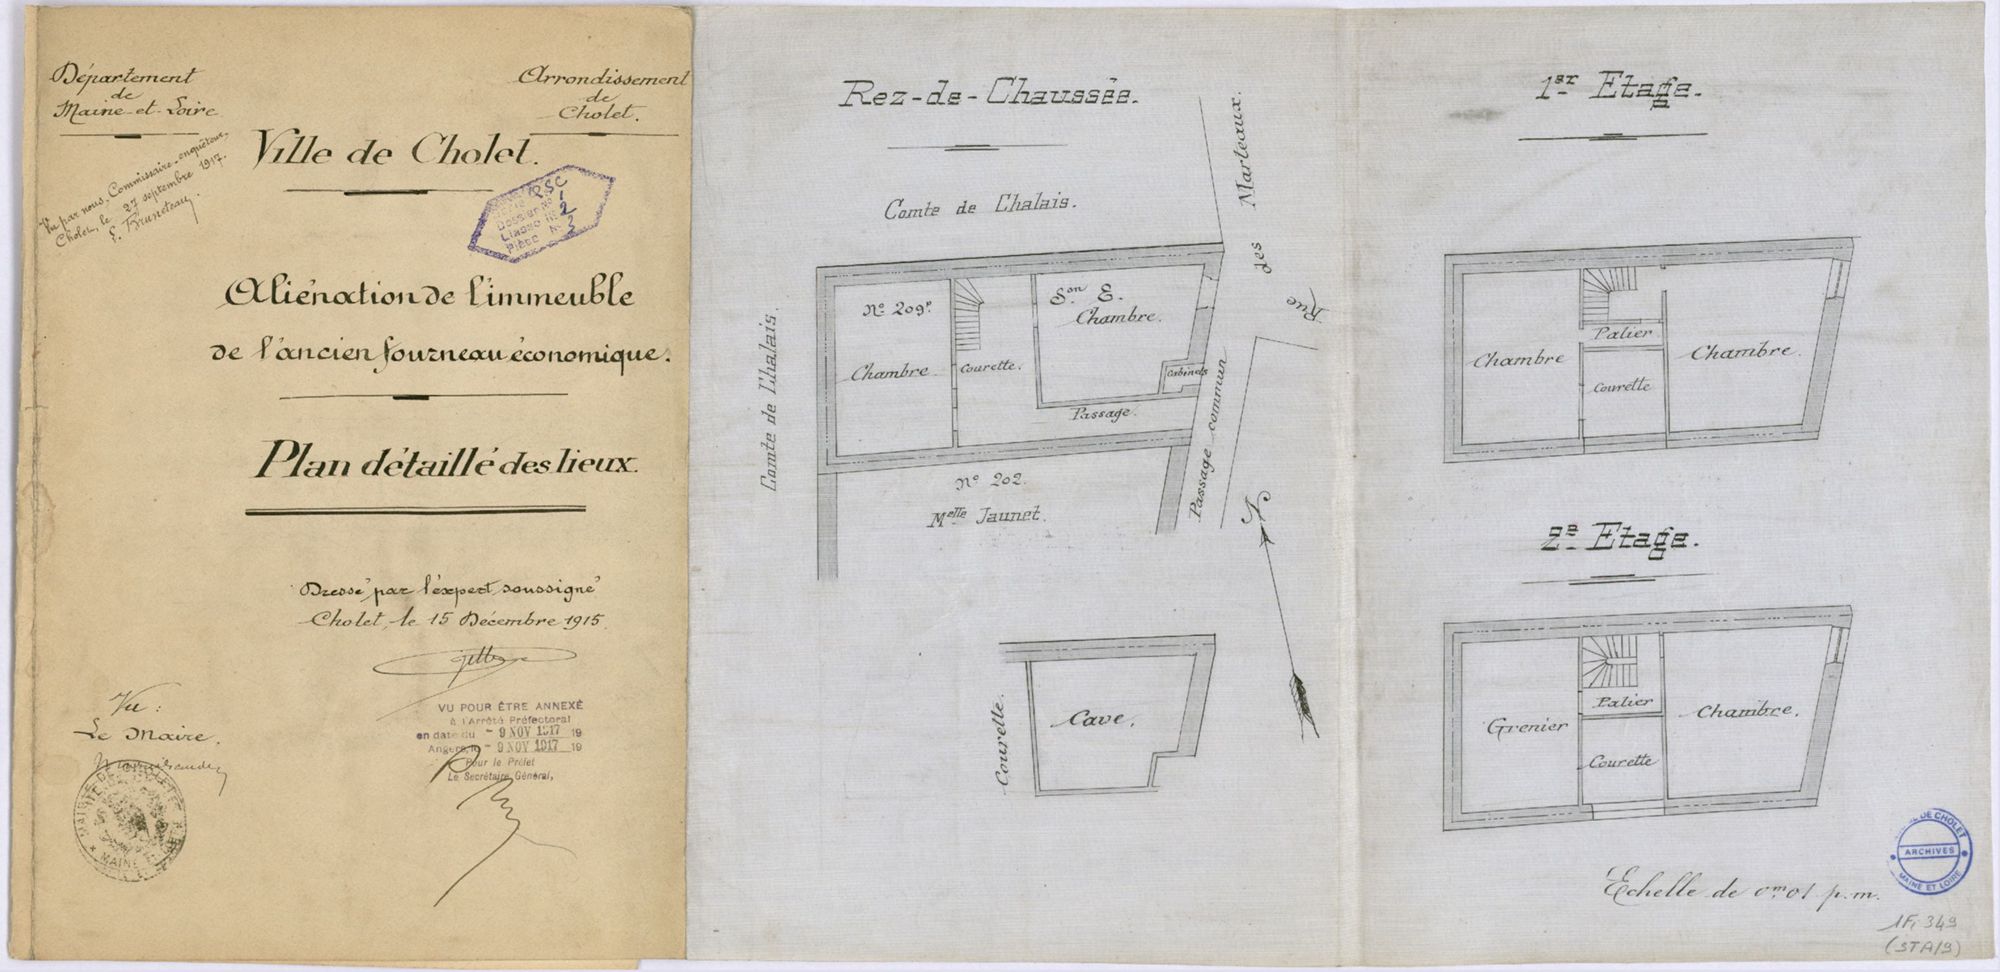 Département
de
Maine-et-Loire
Arrondissement
de
Cholet.
Vu par nous, Commissaire-enquêteur,
Cholet, le 27 septembre 1917.
Ville de Cholet.
Série QSC
Dossier N° 1
Liasse N° 2
Pièce N° 3
Aliénation de l'immeuble
de l'ancien fourneau économique.
Plan détaillé des lieux.
Dressé par l'expert soussigné
Cholet, le 15 Décembre 1915.
VU POUR ÊTRE ANNEXÉ
à l'Arrêté Préfectoral
en date du - 9 NOV 1917 19
Angers, le - 9 NOV 1917 19
Pour le Préfet
Le Secrétaire Général,
Vu:
Le Maire,
MAIRIE DE CHOLET
MAINE
Rez-de-Chaussée.
Comte de Chalais.
Rue des Marteaux.
Comte de Chalais.
N° 209p
Son E.
Chambre.
Chambre
Courette.
Cabinets
Passage.
Passage commun
N° 202.
Melle Jaunet.
Courette.
Cave.
1er Etage.
Chambre
Palier
Courette
Chambre.
2e Etage.
Grenier
Palier
Courette
Chambre.
Echelle de 0m,01 p.m.
DE CHOLET
ARCHIVES
MAINE ET LOIRE
1Fi 349
(STA/9)